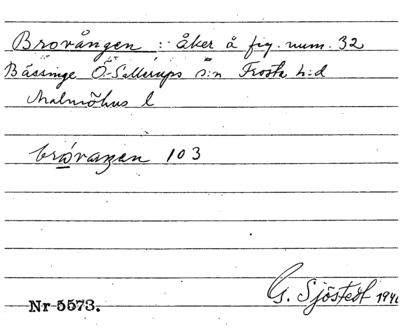 Brovången : åker å fig. num. 32
Bässinge Ö. Sallerups s:n Frosta h:d
Malmöhus l
bråvaŋen 103
G. Sjöstedt 1940
Nr 5573.